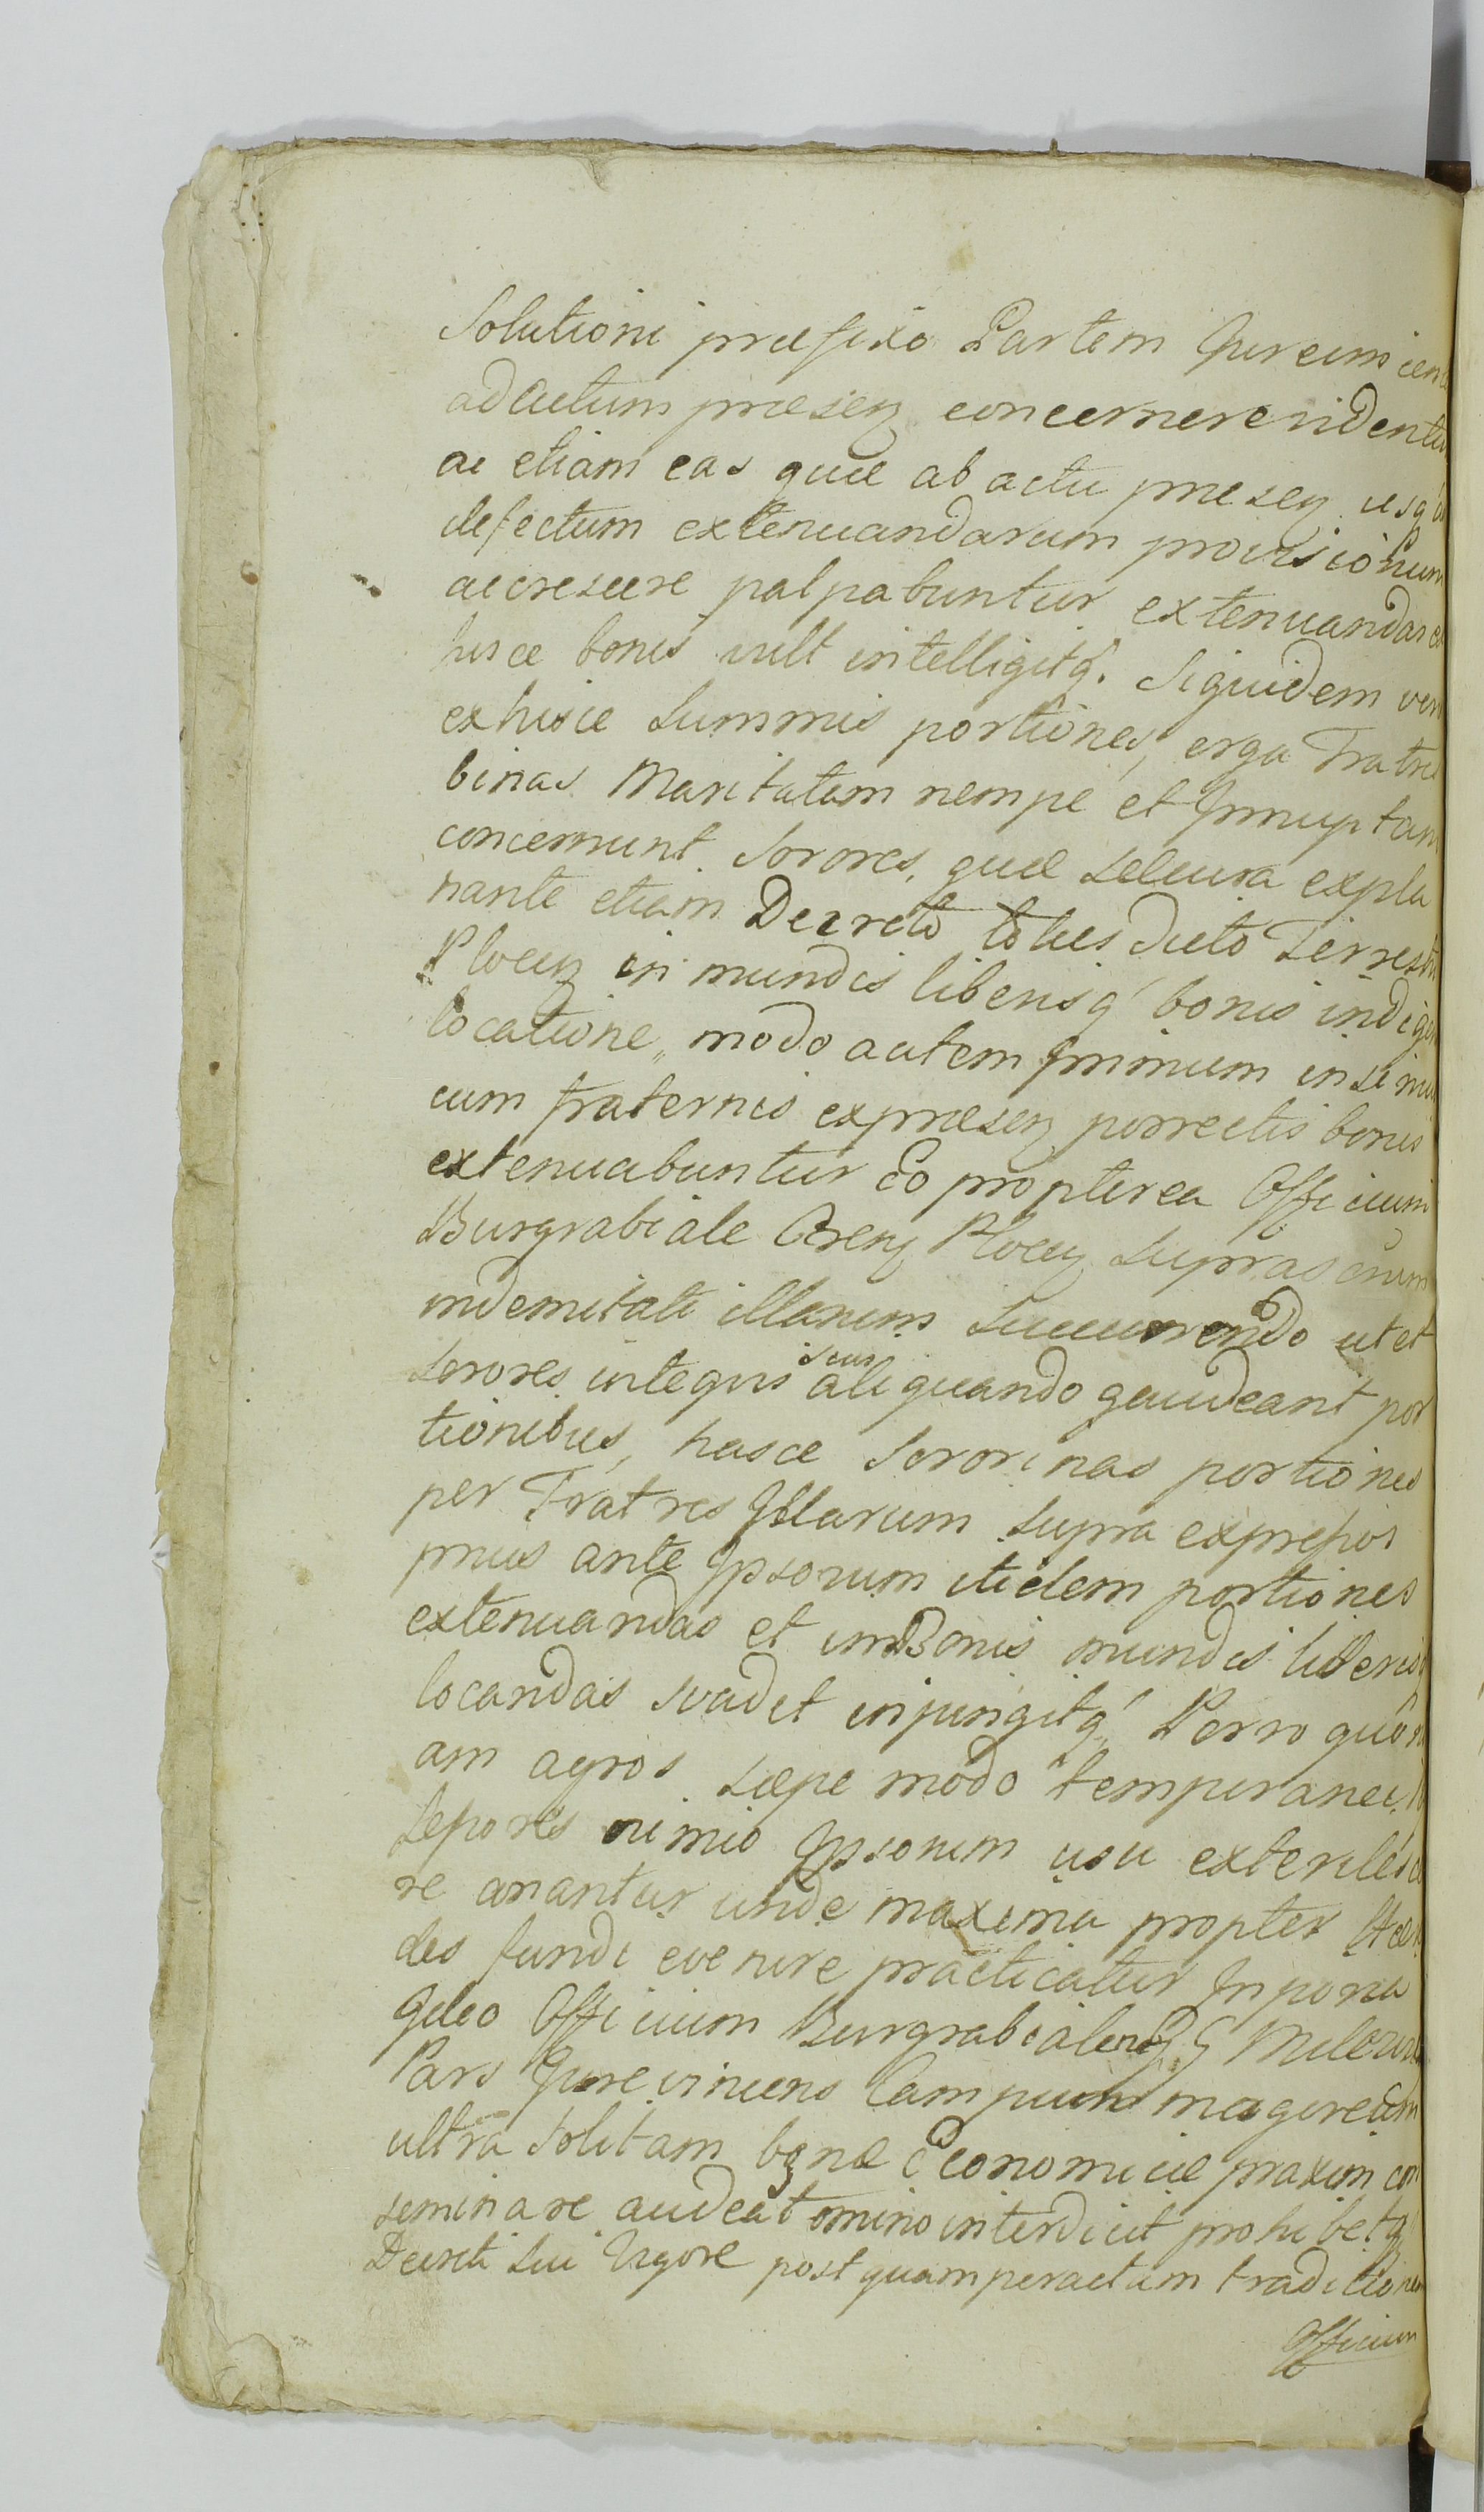 Solutioni præfixo Partem Jurevincen
ad actum præsen concernere videntur
ac etiam eas quæ ab actu præsen usq
defectum extenuandarum provisionum
accrescere palpabuntur extenuandas ex
hisce bonis vult intelligitq. Siquidem vero
ex hisce Summis portiones, erga Fratres
binas Maritatam nempe et Innuptam
concernunt Sorores, quæ explu
nante etiam Decreto toties dicto Terrestri
Plocen in mundis liberisq bonis indigen
locatione, modo autem Primum insimul
cum fraternis ex præsen porrectis bonis
extenuabuntur Eo propterea Officium
Burgrabiale Plocen Supras
indemnitati illarum Succurrendo ut et
Sorores integris suis aliquando gaudeant por
tionibus, hasce Sororinas portiones
per Fratres Illarum Supra expressos
prius ante Ipsorum itidem portiones
extenuandas et in Bonis mundis liberisq
locandas svadet injungitq. Porro quoni
am agros sæpe modo temperanei
Lepores nimio Ipsorum usu exterilesce
re unde maxima propter
des fundi evenire practicatur
Ideo Officium Burgrabiale
Pars Jurevincens Campum
ultra Solitam bonæ Oeconomiciæ praxim con
seminare audeat omnino interdicit prohibetq
Decreti Sui Vigore postquam peractam traditionem
Officium